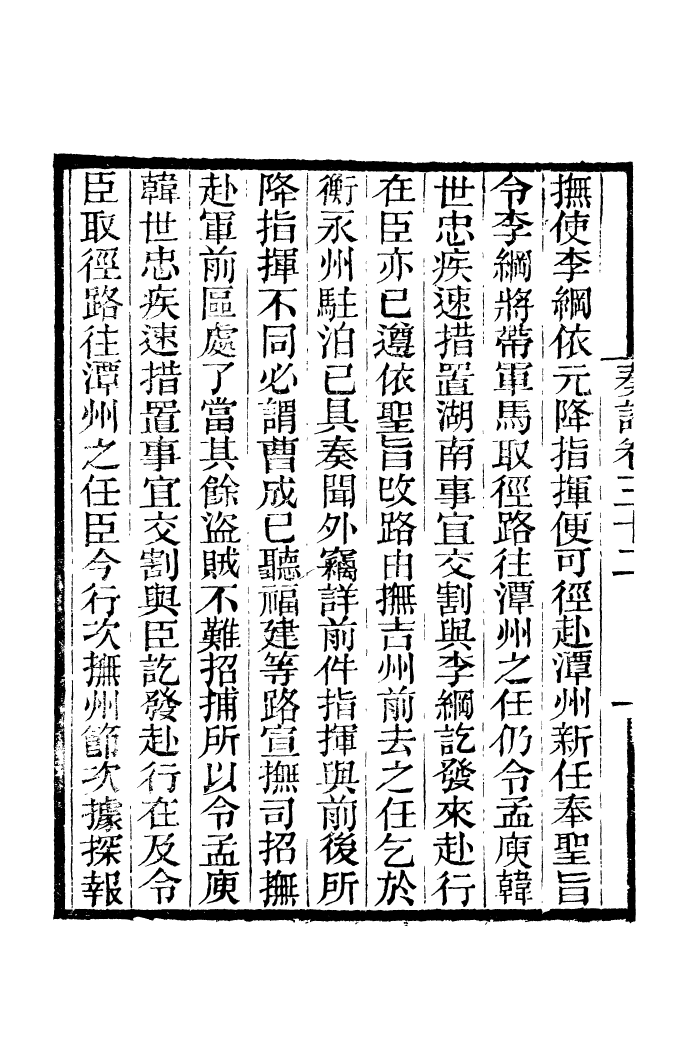 奏議卷三十二
一
撫使李綱依元降指揮便可徑赴潭州新任奉聖旨
令李綱將帶軍馬取徑路往潭州之任仍令孟庾韓
世忠疾速措置湖南事宜交割與李綱訖發來赴行
在臣亦已遵依聖旨改路由撫吉州前去之任乞於
衡永州駐泊已具奏聞外竊詳前件指揮與前後所
降指揮不同必謂曹成已聽福建等路宣撫司招撫
赴軍前區處了當其餘盜賊不難招捕所以令孟庾
韓世忠疾速措置事宜交割與臣訖發赴行在及令
臣取徑路往潭州之任臣今行次撫州節次據探報